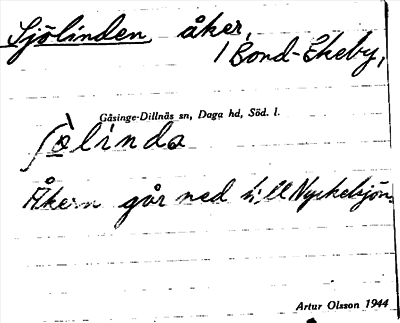 Sjölinden, åker,
Bond-Ekeby,
Gåsinge-Dillnäs sn, Daga hd, Söd. l.
Åkern går ned till Nyckelsjön.
Artur Olsson 1944